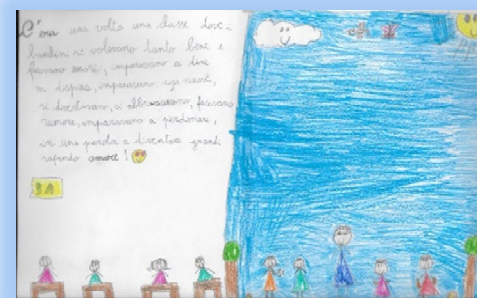 C'era una volta una classe dove i
bambini si volevano tanto bene e
facevano errori, imparavano a dire
mi dispiace, imparavano cose nuove,
si divertivano, si abbracciavano, facevano
rumore, imparavano a perdonare,
in una parola a diventare grandi
sapendo amare!
3A